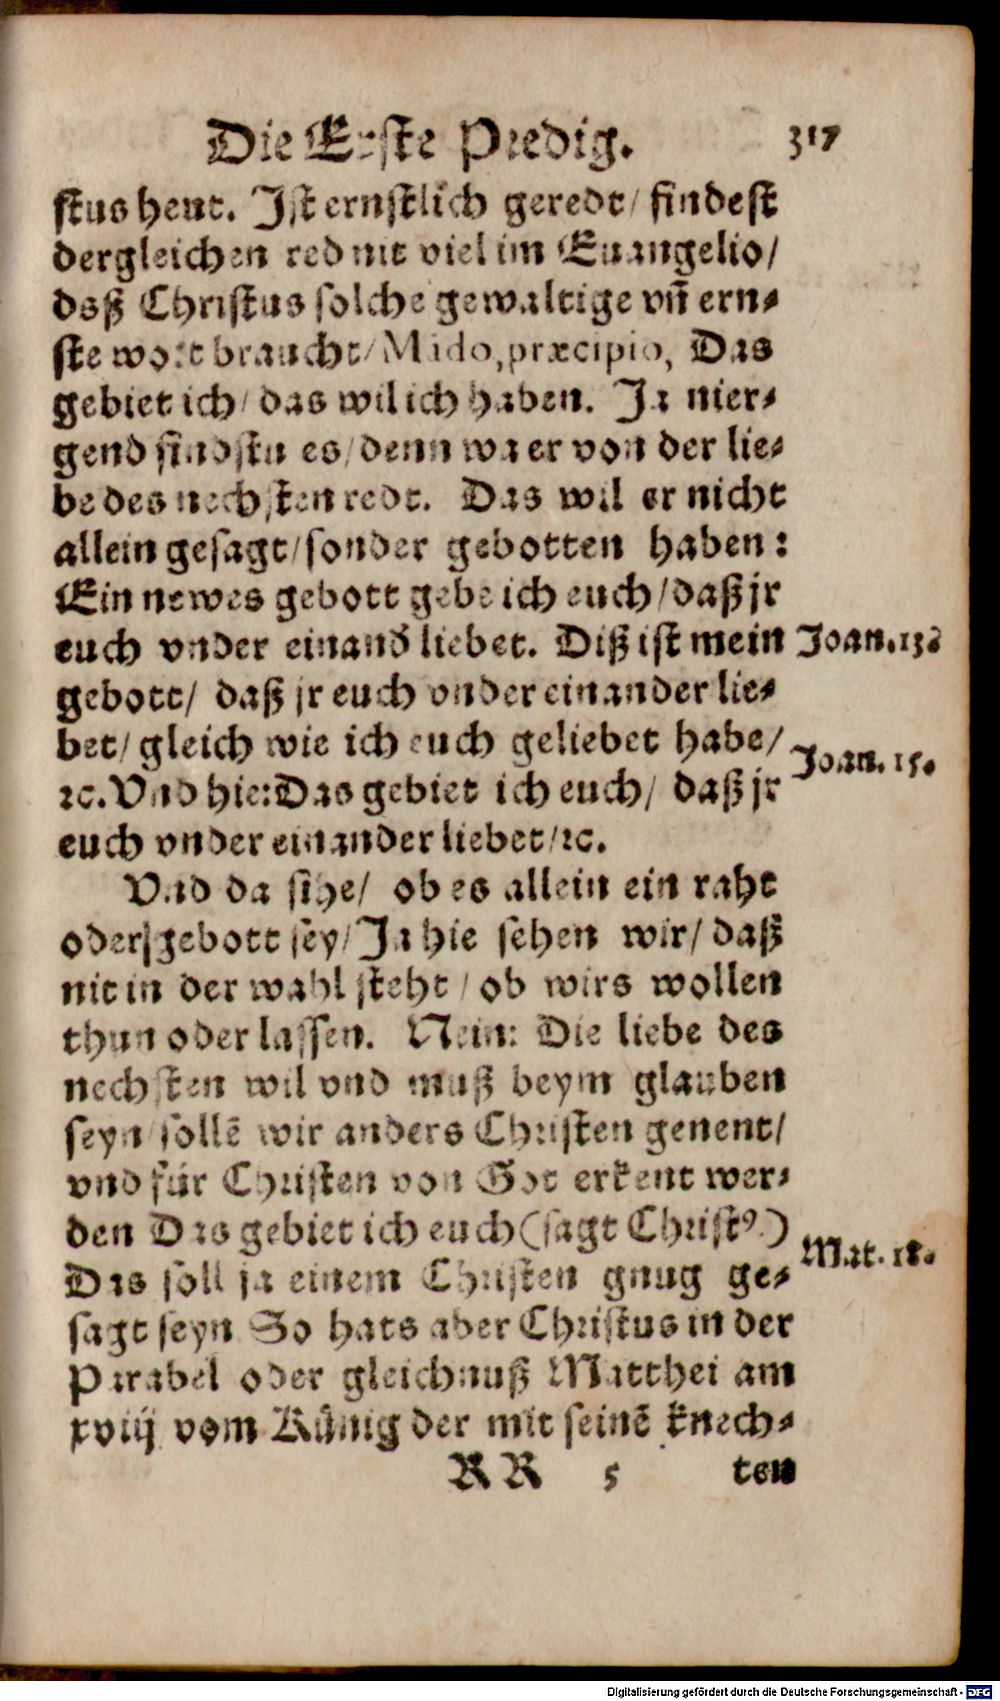 Die Erste Predig. 317
stus heut. Ist ernstlich geredt/ findest
dergleichen red nit viel im Euangelio/
daß Christus solche gewaltige vñ ern-
ste wort braucht/ Mãdo, præcipio, Das
gebiet ich/ das wil ich haben. Ja nier-
gend findstu es/ denn wa er von der lie-
be des nechsten redt. Das wil er nicht
allein gesagt/ sonder gebotten haben:
Ein newes gebott gebe ich euch/ daß jr
euch vnder einand̃ liebet. Diß ist mein Joan.13.
gebott/ daß jr euch vnder einander lie-
bet/ gleich wie ich euch geliebet habe/ Joan. 15.
ꝛc. Vnd hie: Das gebiet ich euch/ daß jr
euch vnder einander liebet/ ꝛc.
Vnd da sihe/ ob es allein ein raht
oder gebott sey/ Ja hie sehen wir/ daß
nit in der wahl steht/ ob wirs wollen
thun oder lassen. Nein: Die liebe des
nechsten wil vnd muß beym glauben
seyn/ sollẽ wir anders Christen genent/
vnd für Christen von Got erkent wer-
den Das gebiet ich euch (sagt Christꝰ.)
Das soll ja einem Christen gnug ge- Mat. 18.
sagt seyn So hats aber Christus in der
Parabel oder gleichnuß Matthei am
xviij vom Künig der mit seinẽ knech-
RR 5 ten
Digitalisierung gefördert durch die Deutsche Forschungsgemeinschaft - DFG